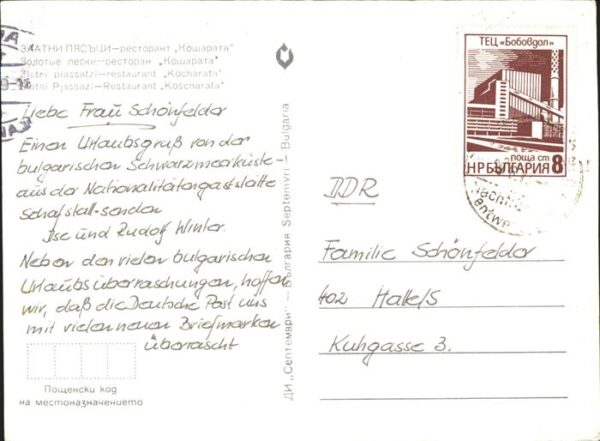 ЗЛАТНИ ПЯСЪЦИ—ресторант „Кошарата"
Золотые пески—ресторан „Кошарата"
Zlatni piassatzi—Restaurant „Kocharata"
Zlatni Pjassazi—Restaurant „Koscharata"
Liebe Frau Schönfelder
Einen Urlaubsgruß von der
bulgarischen Schwarzmeerküste
aus der Nationalitätengaststätte
Schafstall senden
Ilse und Rudolf Winter.
Neben den vielen bulgarischen
Urlaubsüberraschungen, hoffen
wir, daß die Deutsche Post uns
mit vielen neuen Briefmarken
überrascht
Пощенски код
на местоназначението
ДИ „Септември" — България Septemvri — Bulgaria
ТЕЦ „Бобовдол"
поща ст
НРБЪЛГАРИЯ 8
DDR
Familie Schönfelder
402 Halle/S
Kuhgasse 3.